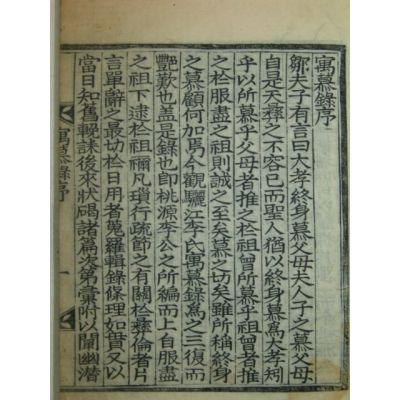 寓慕錄序
鄒夫子有言曰大孝終身慕父母夫人子之慕父母
自是天彛之不容已而聖人猶以終身慕爲大孝矧
乎以所慕乎父母者推之於祖曾所慕乎祖曾者推
之於服盡之祖則誠之至矣慕之切矣雖所稱終身
之慕顧何加焉今觀驪江李氏寓慕錄爲之三復而
艶歎也盖是錄也卽桃源李公之所編而上自服盡
之祖下逮於祖禰凡瑣行疏節之有關於彛倫者片
言單辭之最切於日用者蒐羅輯錄條理如貫又以
當日知舊輓誄後來狀碣諸篇次第彙附以闡幽潜
寓慕錄序
一